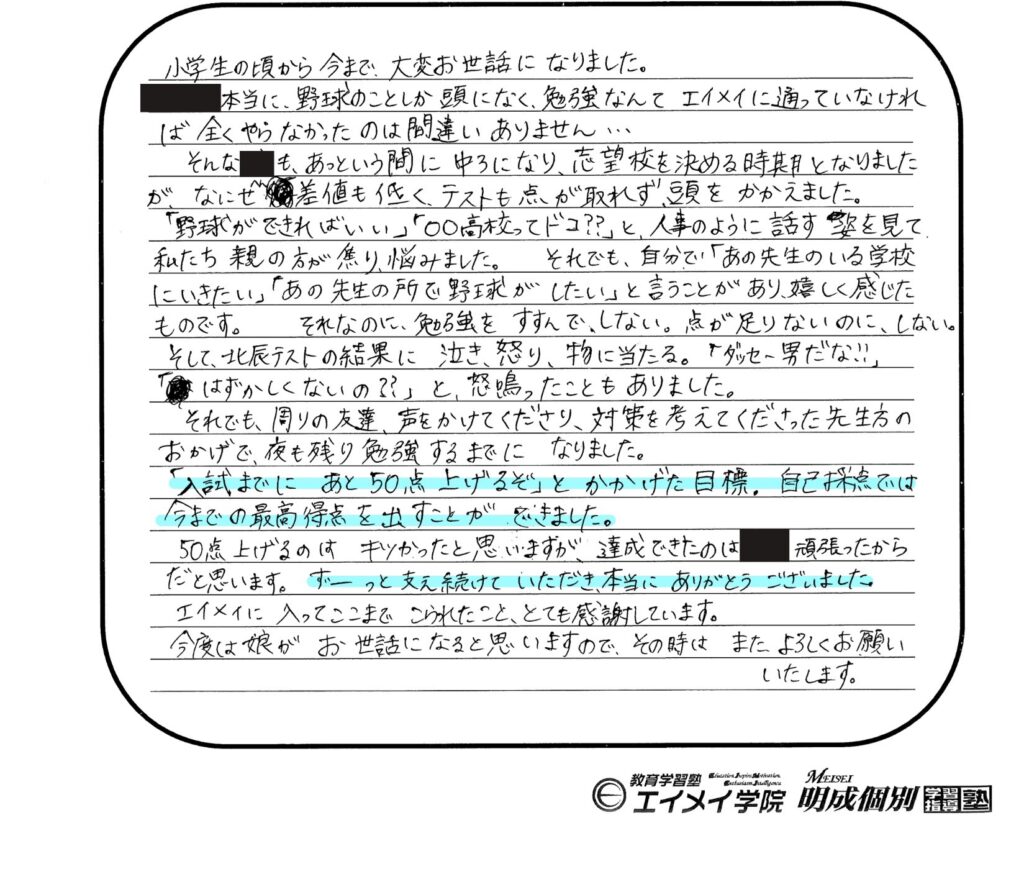 小学生の頃から今まで、大変お世話になりました。
本当に、野球のことしか頭になく、勉強なんてエイメイに通っていなけれ
ば全くやらなかったのは間違いありません…
そんな も、あっという間に中3になり、志望校を決める時期となりました
が、なにせ 差値も低く、テストも点が取れず、頭をかかえました。
「野球ができればいい」「〇〇高校ってドコ??」と、人事のように話す姿を見て、
私たち親の方が焦り、悩みました。 それでも、自分で「あの先生のいる学校
にいきたい」「あの先生の所で野球がしたい」と言うことがあり、嬉しく感じた
ものです。 それなのに、勉強をすすんで、しない。点が足りないのに、しない。
そして、北辰テストの結果に泣き、怒り、物に当たる。「ダッセー男だな!!」
「はずかしくないの??」と、怒鳴ったこともありました。
それでも、周りの友達、声をかけてくださり、対策を考えてくださった先生方の
おかげで、夜も残り勉強するまでに なりました。
「入試までに あと50点上げるぞ」とかかげた目標。自己採点では
今までの最高得点を出すことができました。
50点上げるのは キツかったと思いますが、達成できたのは 頑張ったから
だと思います。ずーっと支え続けていただき、本当にありがとうございました。
エイメイに入ってここまでこられたこと、とても感謝しています。
今度は娘が お世話になると思いますので、その時は またよろしくお願い
いたします。
教育学習塾 Education Inspire Motivation Enthusiasm Intelligence
エイメイ学院 MEISEI 明成個別 学習指導塾